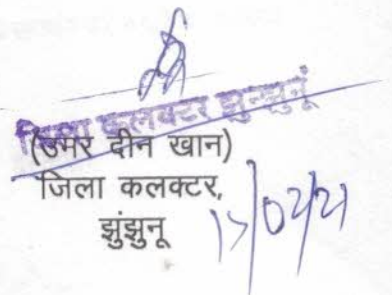 जिला कलक्टर झुन्झुनूं
(उमर दीन खान)
जिला कलक्टर,
झुंझुनू
17/02/21